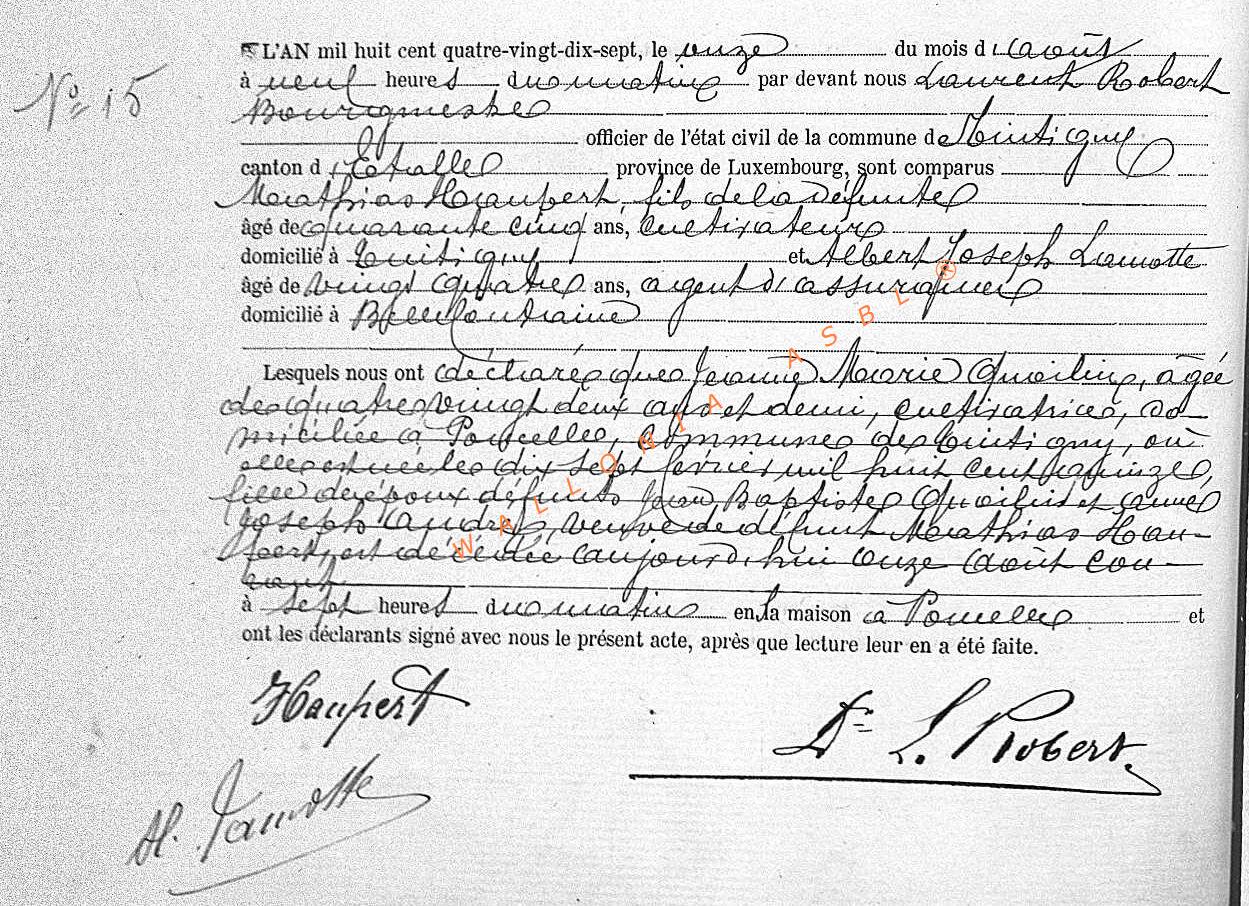 N° 15
L'AN mil huit cent quatre-vingt-dix-sept, le onze du mois d'août
à neuf heures du matin par devant nous Laurent Robert
Bourgmestre
officier de l'état civil de la commune de Tintigny
canton d'Etalle province de Luxembourg, sont comparus
Mathias Haupert, fils de la défunte
âgé de quarante cinq ans, cultivateur
domicilié à Tintigny et Albert Joseph Lamotte
âgé de vingt quatre ans, agent d'assurances
domicilié à Bellefontaine
Lesquels nous ont déclaré que Jeanne Marie Quoilin, âgée
de quatre vingt deux ans et demi, cultivatrice, do-
miciliée à Poncelle, commune de Tintigny, où
elle est née le dix sept février mil huit cent quinze,
fille des époux défunts Jean Baptiste Quoilin et Anne
Joseph Andre, veuve de défunt Mathias Hau-
pert, est décédée aujourd'hui onze août cou-
rant
à sept heures du matin en sa maison à Poncelle et
ont les déclarants signé avec nous le présent acte, après que lecture leur en a été faite.
Haupert
Dr L. Robert
Al. Lamotte
WALLONIA ASBL ®